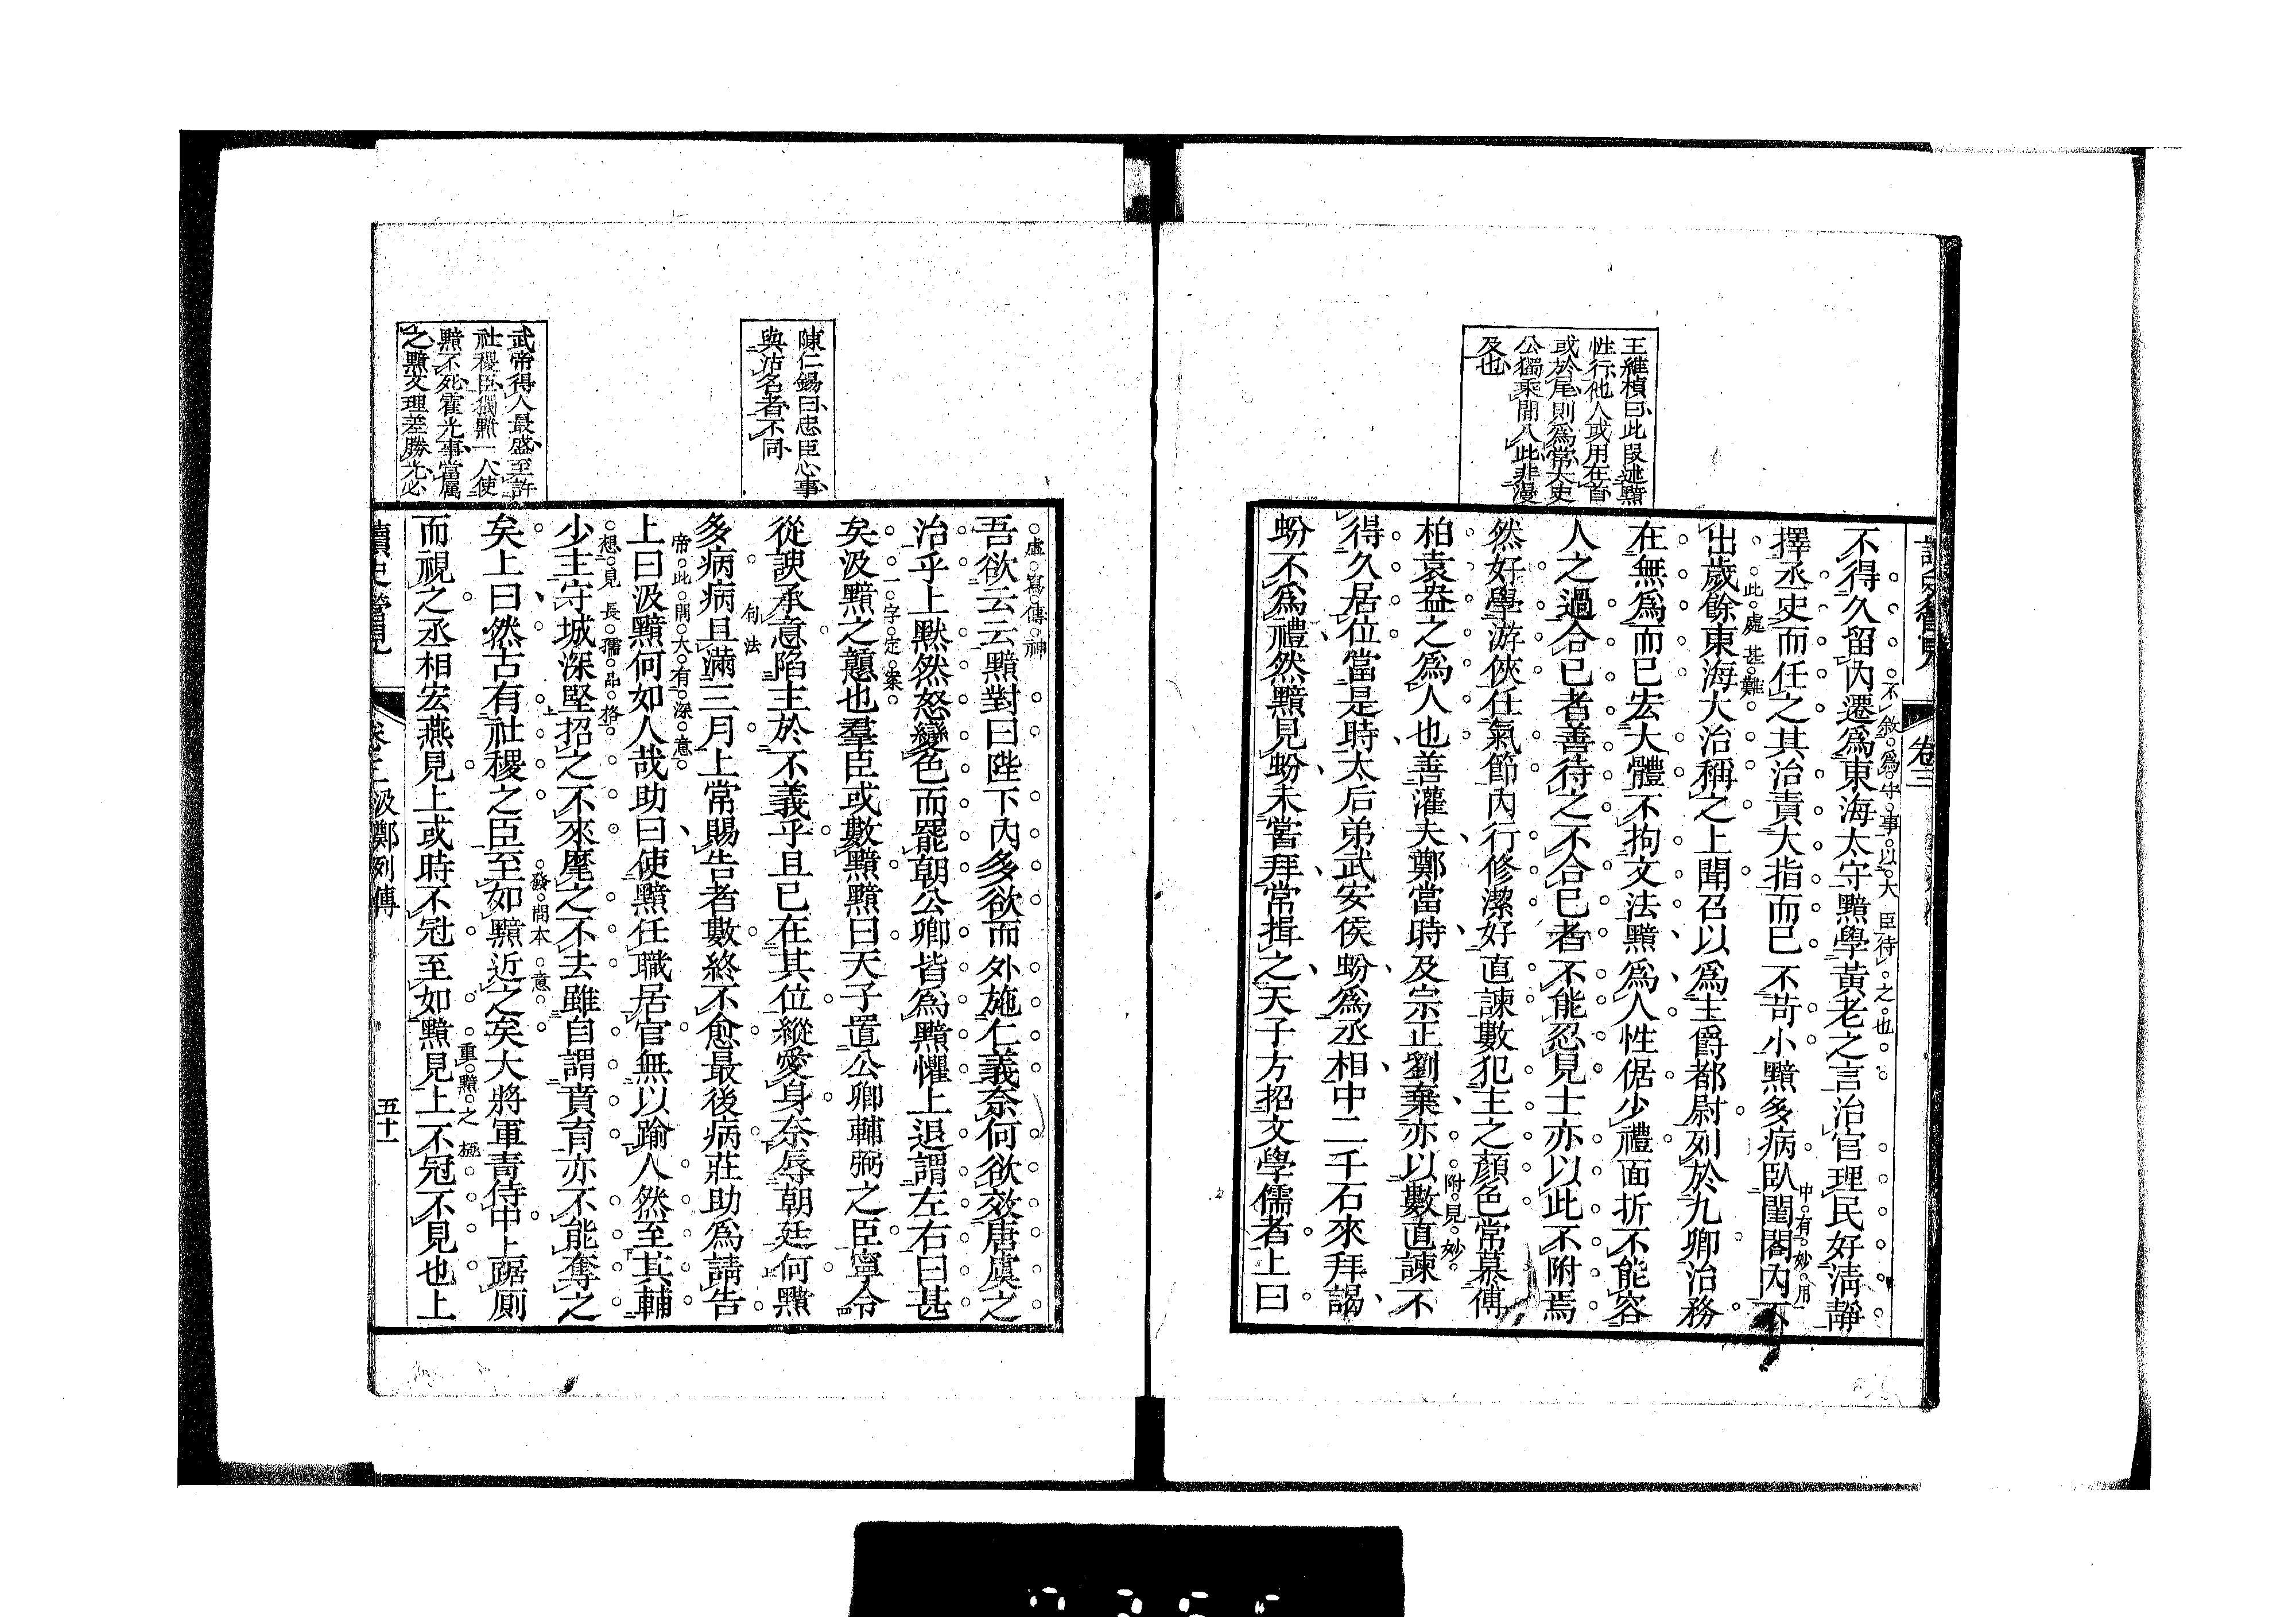 讀史管見
卷三
王維楨曰此段述黯
性行他人或用在首
或於尾則爲常太史
公獨乘間入此非漫
及也
不得久留內遷爲東海太守黯學黃老之言治官理民好淸靜
不敘爲守事以大臣待之也
擇丞史而任之其治責大指而已不苛小黯多病臥閨閤內不
中有妙用
此處甚難
出歲餘東海大治稱之上聞召以爲主爵都尉列於九卿治務
在無爲而已宏大體不拘文法黯爲人性倨少禮面折不能容
人之過合己者善待之不合己者不能忍見士亦以此不附焉
然好學游俠任氣節內行修潔好直諫數犯主之顏色常慕傅
附見妙
柏袁盎之爲人也善灌夫鄭當時及宗正劉棄亦以數直諫不
得久居位當是時太后弟武安侯蚡爲丞相中二千石來拜謁
蚡不爲禮然黯見蚡未嘗拜常揖之天子方招文學儒者上曰
陳仁錫曰忠臣心事
與沽名者不同
武帝得人最盛至許
社稷臣獨黯一人使
黯不死霍光事當屬
之黯文理差勝光必
虛寫傳神
吾欲云云黯對曰陛下內多欲而外施仁義奈何欲效唐虞之
治乎上默然怒變色而罷朝公卿皆爲黯懼上退謂左右曰甚
一字定案
矣汲黯之戇也羣臣或數黯黯曰天子置公卿輔弼之臣寧令
從諛承意陷主於不義乎且已在其位縱愛身奈辱朝廷何黯
句法
多病病且滿三月上常賜告者數終不愈最後病莊助爲請告
帝此問大有深意
上曰汲黯何如人哉助曰使黯任職居官無以踰人然至其輔
想見長孺品格
少主守城深堅招之不來麾之不去雖自謂賁育亦不能奪之
發問本意
矣上曰然古有社稷之臣至如黯近之矣大將軍靑侍中上踞厠
重黯之極
而視之丞相宏燕見上或時不冠至如黯見上不冠不見也上
讀史管見
卷三汲鄭列傳
五十一